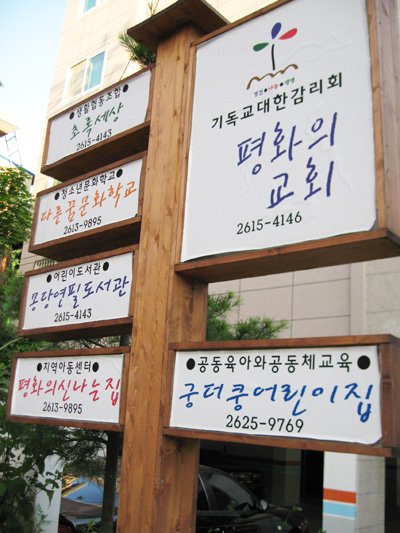 ●생활협동조합●
초록세상
2615-4143
●청소년문화학교●
다른꿈문화학교
2613-9895
●어린이도서관●
몽당연필도서관
2615-4143
●지역아동센터●
평화의신나는집
2613-9895
기독교대한감리회
평화의
교회
2615-4146
●공동육아와공동체교육●
궁더쿵어린이집
2625-9769